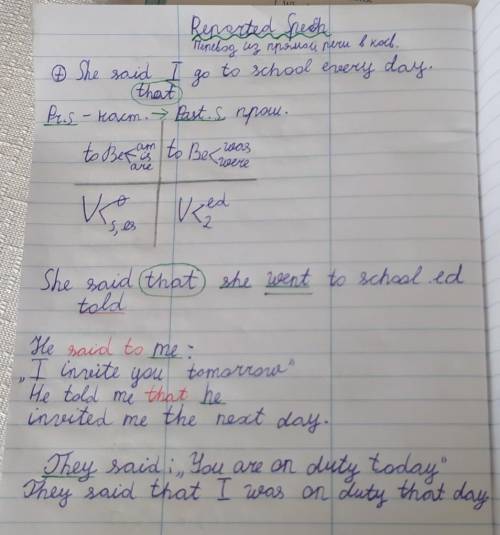 Reported Speech
Перевод из прямой речи в косв.
⊕ She said I go to school every day.
that
Pr.S - наст. → Past.S прош.
to Be < am is are | to Be < was were
V < ∅ s, es | V < ed 2
She said that she went to school ed
told
He said to me:
„I invite you tomorrow“
He told me that he
invited me the next day.
They said: „You are on duty today“
They said that I was on duty that day